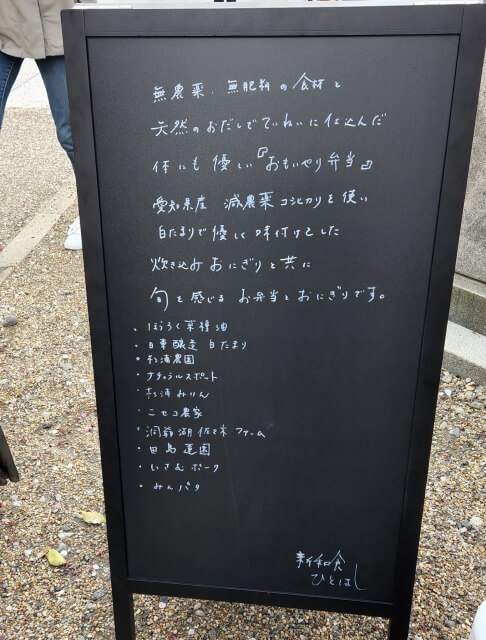 無農薬、無肥料の食材と
天然のおだしでていねいに仕込んだ
体にも優しい『おもいやり弁当』
愛知県産 減農薬コシヒカリを使い
白たまりで優しく味付けをした
炊き込みおにぎりと共に
旬を感じる お弁当とおにぎりです。
・ほうろく菜種油
・日東醸造 白たまり
・杉浦農園
・ナチュラルスポット
・杉浦みりん
・ニセコ農家
・洞爺湖佐々木ファーム
・田島蓮園
・いさむポーク
・みんパタ
新和食
ひとはし